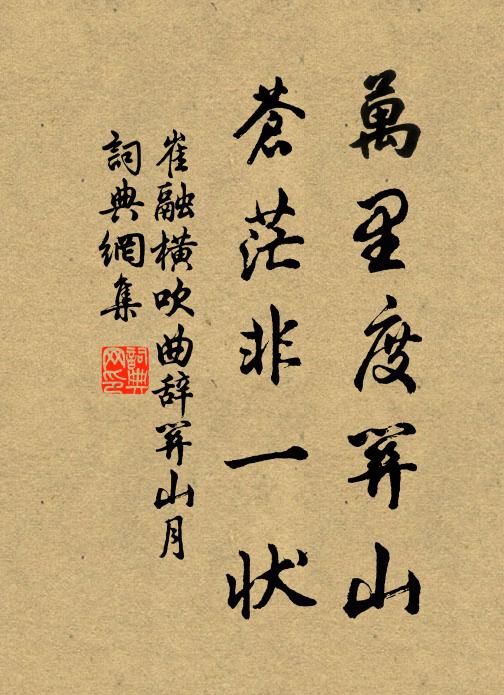 萬里度關山
蒼茫非一狀
崔融橫吹曲辞關山月
詞典網集
詞典網印